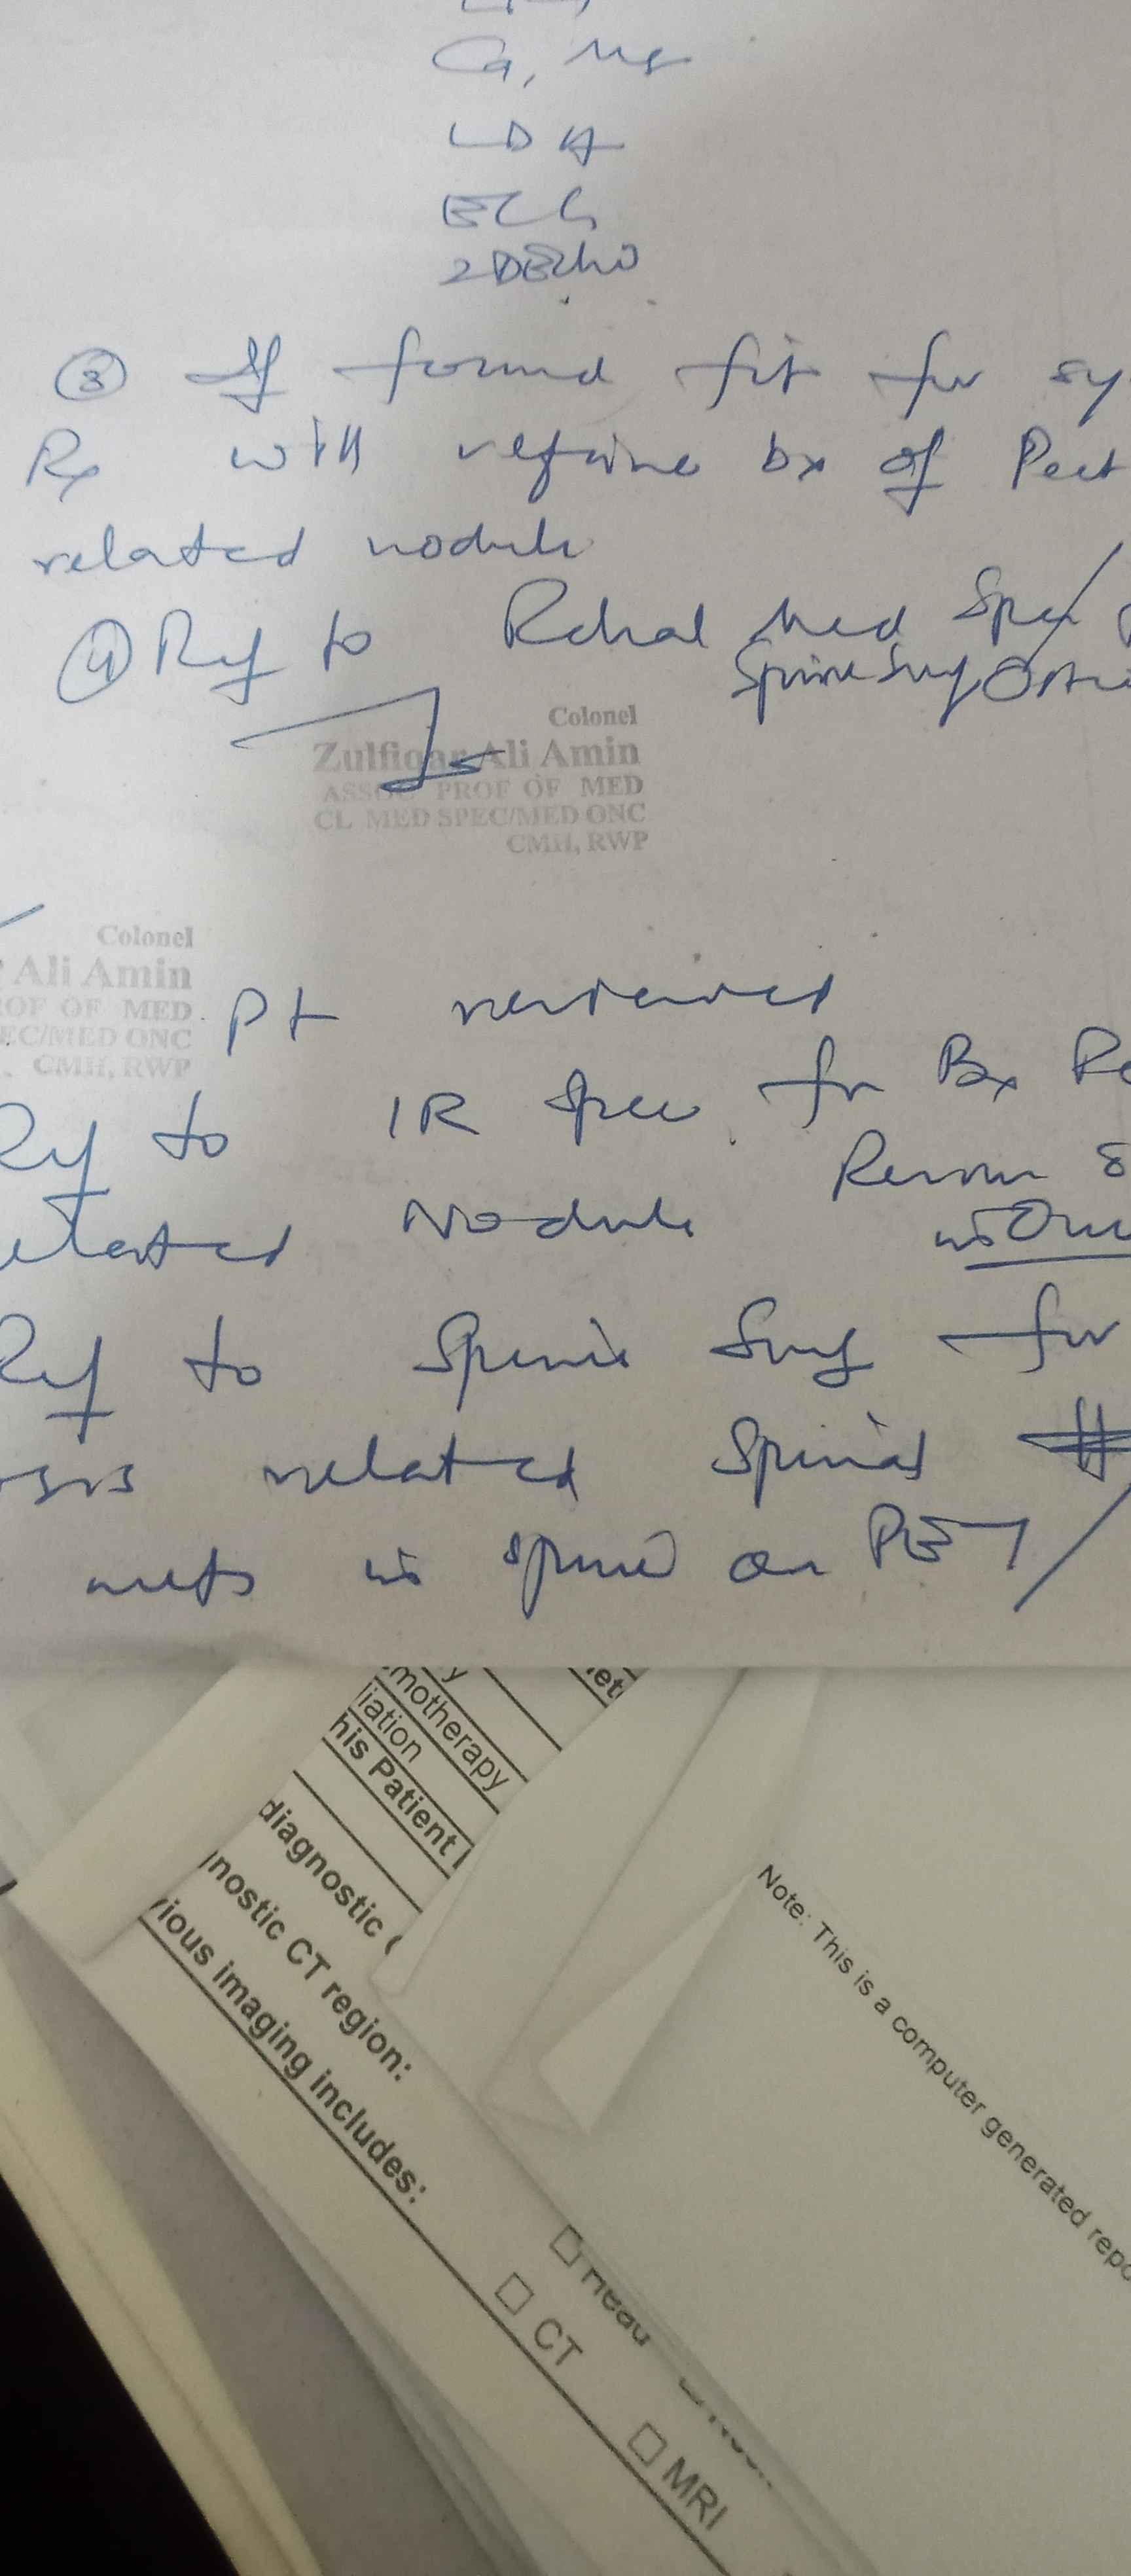 Ca, Mg
LDH
ECG
2D Echo
③ If found fit for sy
Rx will require bx of Pect
related nodule
④ Ref to Rehab Med Spec /
Spine Surg
Colonel
Zulfiqar Ali Amin
ASSOC PROF OF MED
CL MED SPEC/MED ONC
CMH, RWP
Colonel
Ali Amin
OF OF MED
EC/MED ONC
CMH, RWP
Pt reviewed
Ref to IR Spec for Bx
elated Nodule
Ref to Spine Surg for
related Spinal #
mets in spine on PET/
et
y
motherapy
iation
his Patient
diagnostic
nostic CT region:
ious imaging includes:
Head
CT
MRI
Note: This is a computer generated repo